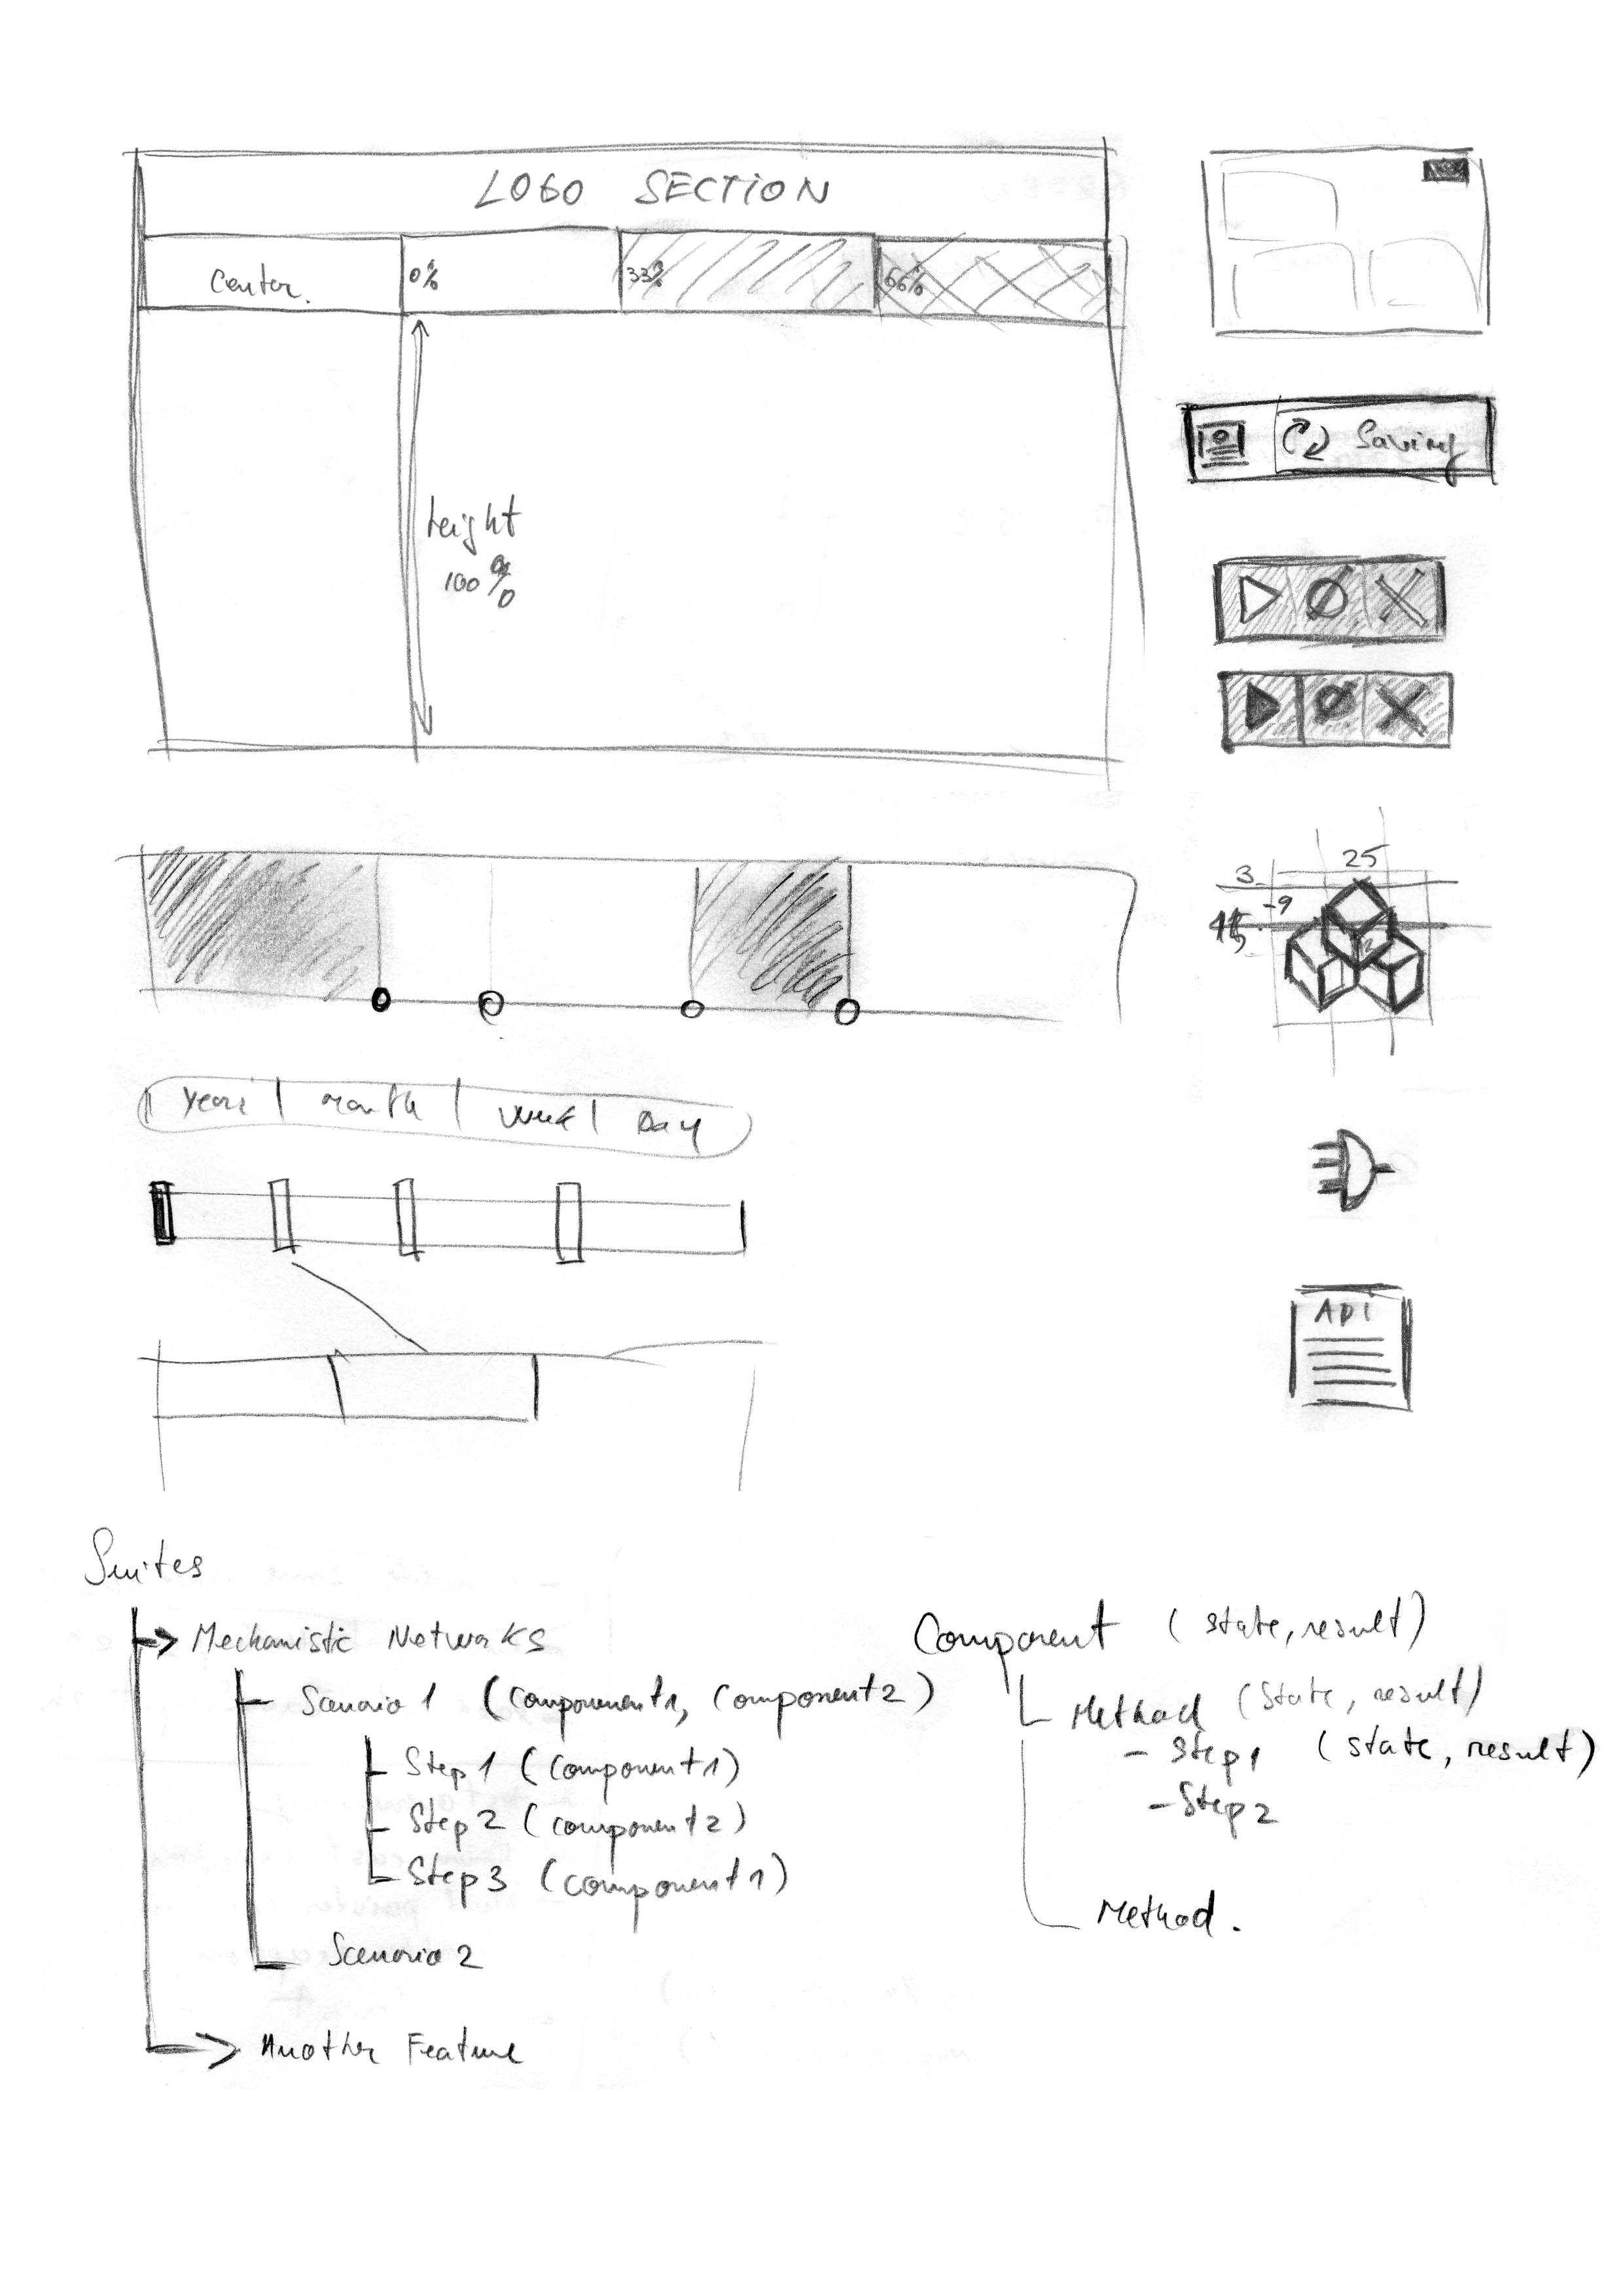 LOGO SECTION
center. 0% 33% 66%
height
100%
Saving
25
3
-9
Year | month | Week | Day
API
Suites
Mechanistic Networks
Scenario 1 (component1, component2)
Step 1 (component1)
Step 2 (component2)
Step 3 (component1)
Scenario 2
Another Feature
Component (state, result)
Method (state, result)
- Step1 (state, result)
- Step2
Method.